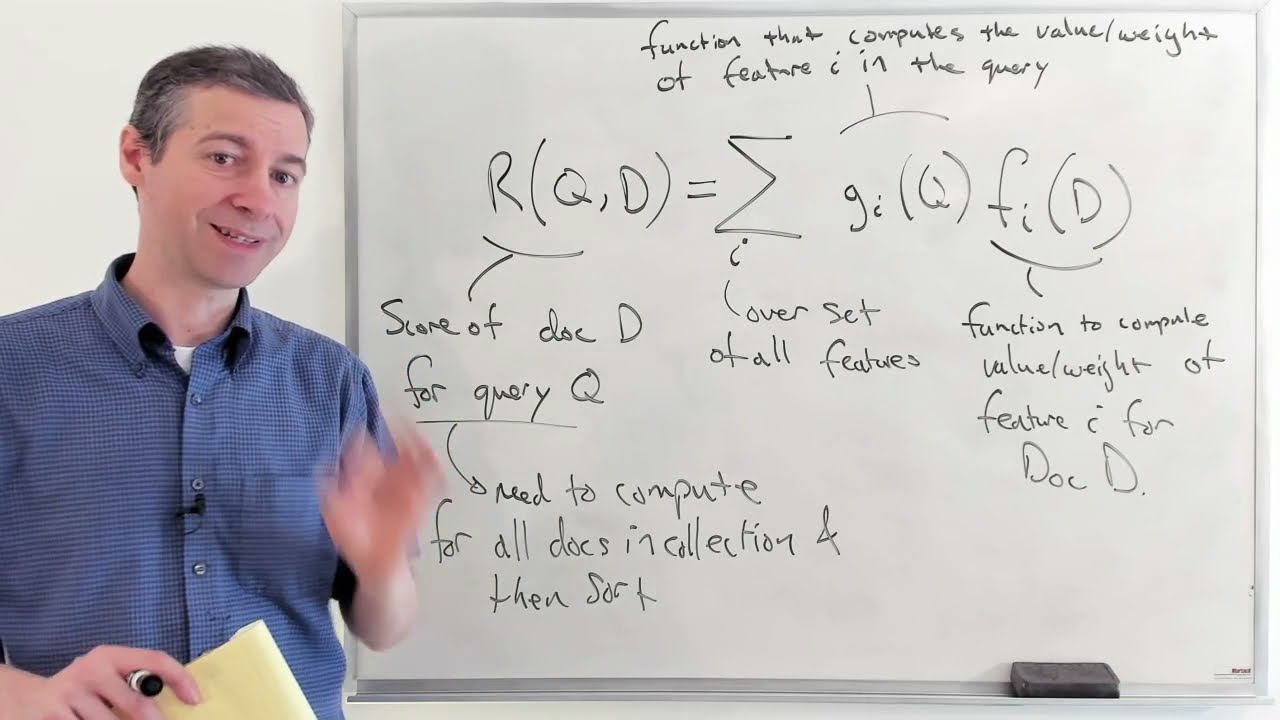 function that computes the value/weight
of feature i in the query
R(Q,D) = ∑ gᵢ(Q) fᵢ(D)
i
Score of doc D
for query Q
over set
of all features
function to compute
value/weight of
feature i for
Doc D.
need to compute
for all docs in collection &
then sort